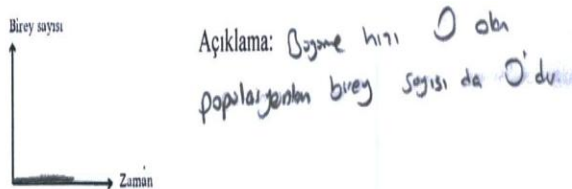 Birey sayısı
Açıklama: Büyüme hızı 0 olan
populasyonlan birey sayısı da 0'du
Zaman